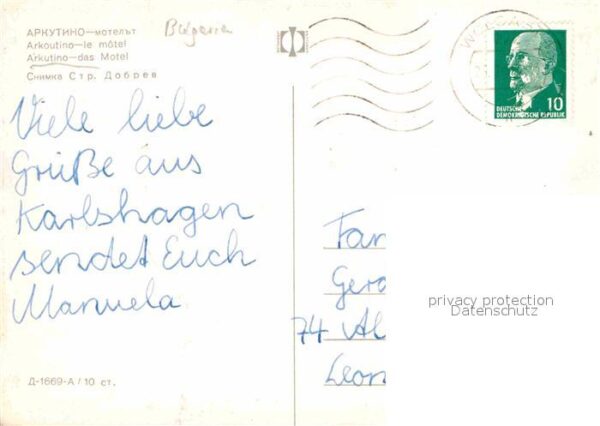 АРКУТИНО—мотелът
Bulgaria
Arkoutino—le môtel
Arkutino—das Motel
Снимка Стр. Добрев
Viele liebe
Grüße aus
Karlshagen
sendet Euch
Manuela
Д-1669-А / 10 ст.
10
DEUTSCHE
DEMOKRATISCHE REPUBLIK
Fam
Gera
74 Al
Leon
privacy protection
Datenschutz